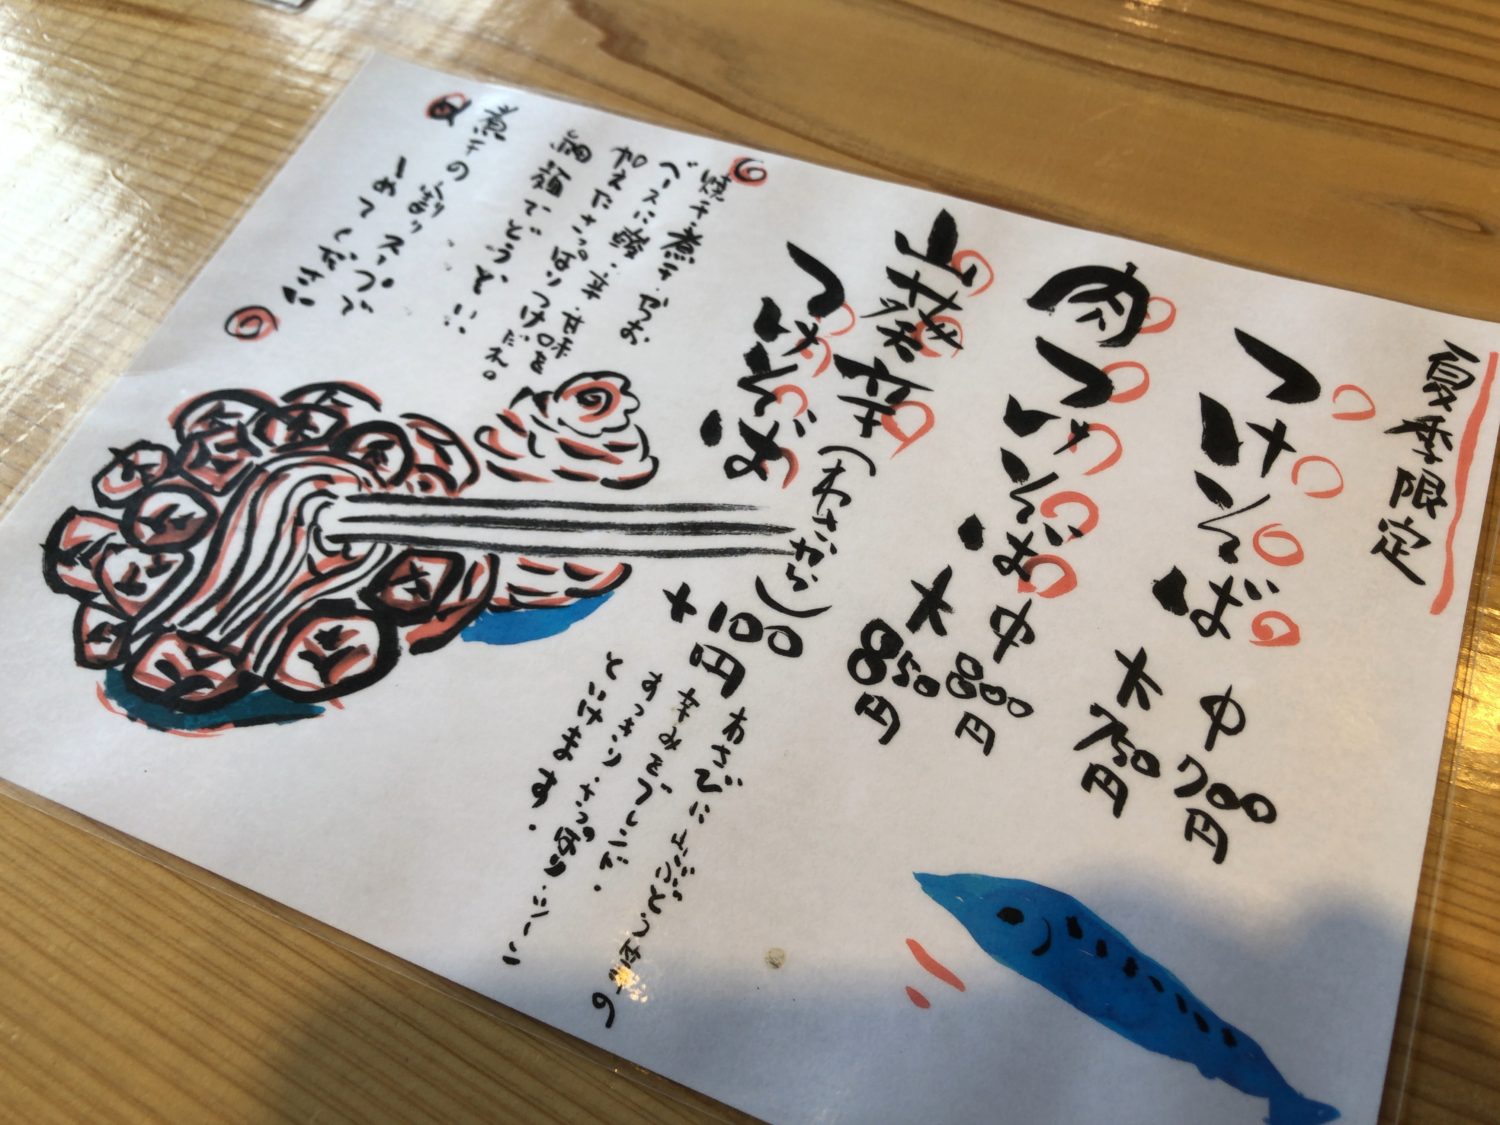 夏季限定
つけそば 中700円
大750円
肉つけそば 中800円
大850円
山葵辛(わさから)
つけそば +100円
わさびに
辛みをブレンド。
すっきり、さっぱり
といけます。
焼干、煮干、かつお
ベースに酸・辛・甘味を
加えたさっぱりつけだれ。
細麺でどうぞ!!
煮干の割りスープで
〆めてください